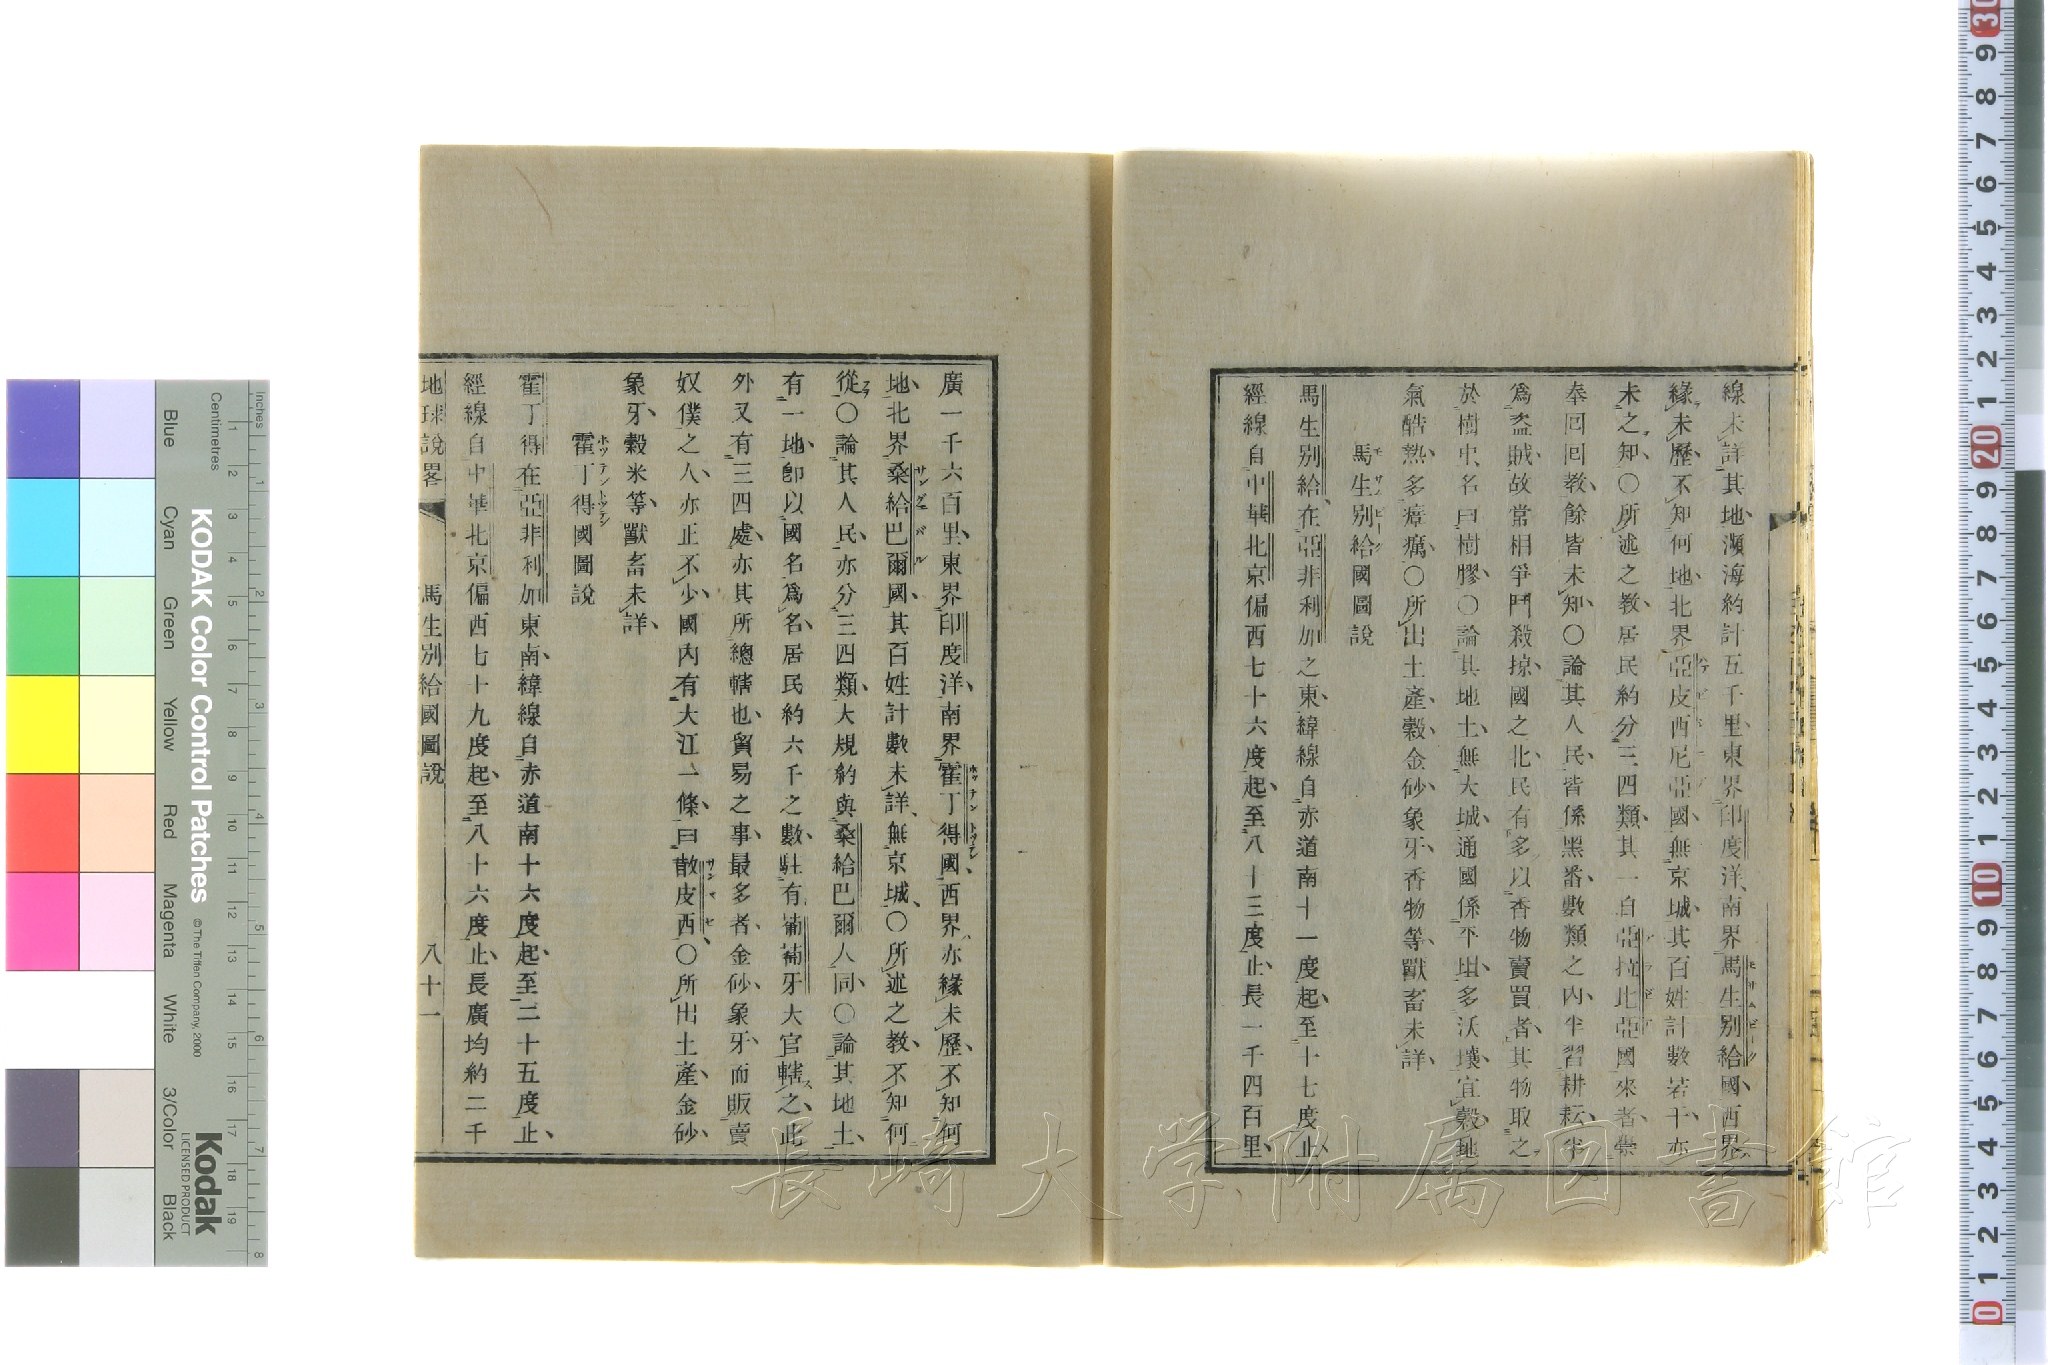 線未詳其地瀕海約計五千里東界印度洋南界馬生別給國西界
緣未歷不知何地北界亞皮西尼亞國無京城其百姓計數若干亦
未之知〇所述之教居民約分三四類其一自亞拉比亞國來者崇
奉回回教餘皆未知〇論其人民皆係黑番數類之內半習耕耘半
爲盜賊故常相爭鬥殺掠國之北民有多以香物賣買者其物取之
於樹中名曰樹膠〇論其地土無大城通國係平坦多沃壤宜穀地
氣酷熱多瘴癘〇所出土產穀金砂象牙香物等獸畜未詳
馬生別給國圖說
馬生別給在亞非利加之東緯線自赤道南十一度起至十七度止
經線自中華北京偏西七十六度起至八十三度止長一千四百里
廣一千六百里東界印度洋南界霍丁得國西界亦緣未歷不知何
地北界桑給巴爾國其百姓計數未詳無京城〇所述之教不知何
從〇論其人民亦分三四類大規約與桑給巴爾人同〇論其地土
有一地卽以國名爲名居民約六千之數駐有葡葡牙大官轄之此
外又有三四處亦其所總轄也貿易之事最多者金砂象牙而販賣
奴僕之人亦正不少國內有大江一條曰散皮西〇所出土產金砂
象牙穀米等獸畜未詳
霍丁得國圖說
霍丁得在亞非利加東南緯線自赤道南十六度起至二十五度止
經線自中華北京偏西七十九度起至八十六度止長廣均約二千
地球說畧 馬生別給國圖說 八十一
長崎大学附属図書館
KODAK Color Control Patches
© The Tiffen Company, 2000
Kodak
LICENSED PRODUCT
Inches
Centimetres
Blue Cyan Green Yellow Red Magenta White 3/Color Black